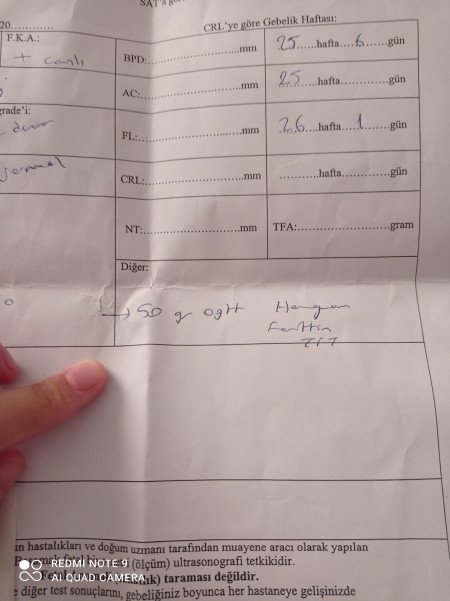 SAT'a gö
20............
CRL'ye göre Gebelik Haftası:
F.K.A.:
+ canlı
BPD:..........................mm
25......hafta....6......gün
AC:..........................mm
25......hafta............gün
grade'i:
FL:..........................mm
26....hafta....1......gün
normal
CRL:..........................mm
............hafta............gün
NT:..........................mm
TFA:..........................gram
Diğer:
→ 50 gr ogtt
ın hastalıkları ve doğum uzmanı tarafından muayene aracı olarak yapılan
(ölçüm) ultrasonografi tetkikidir.
taraması değildir.
e diğer test sonuçlarını, gebeliğiniz boyunca her hastaneye gelişinizde
REDMI NOTE 9
AI QUAD CAMERA